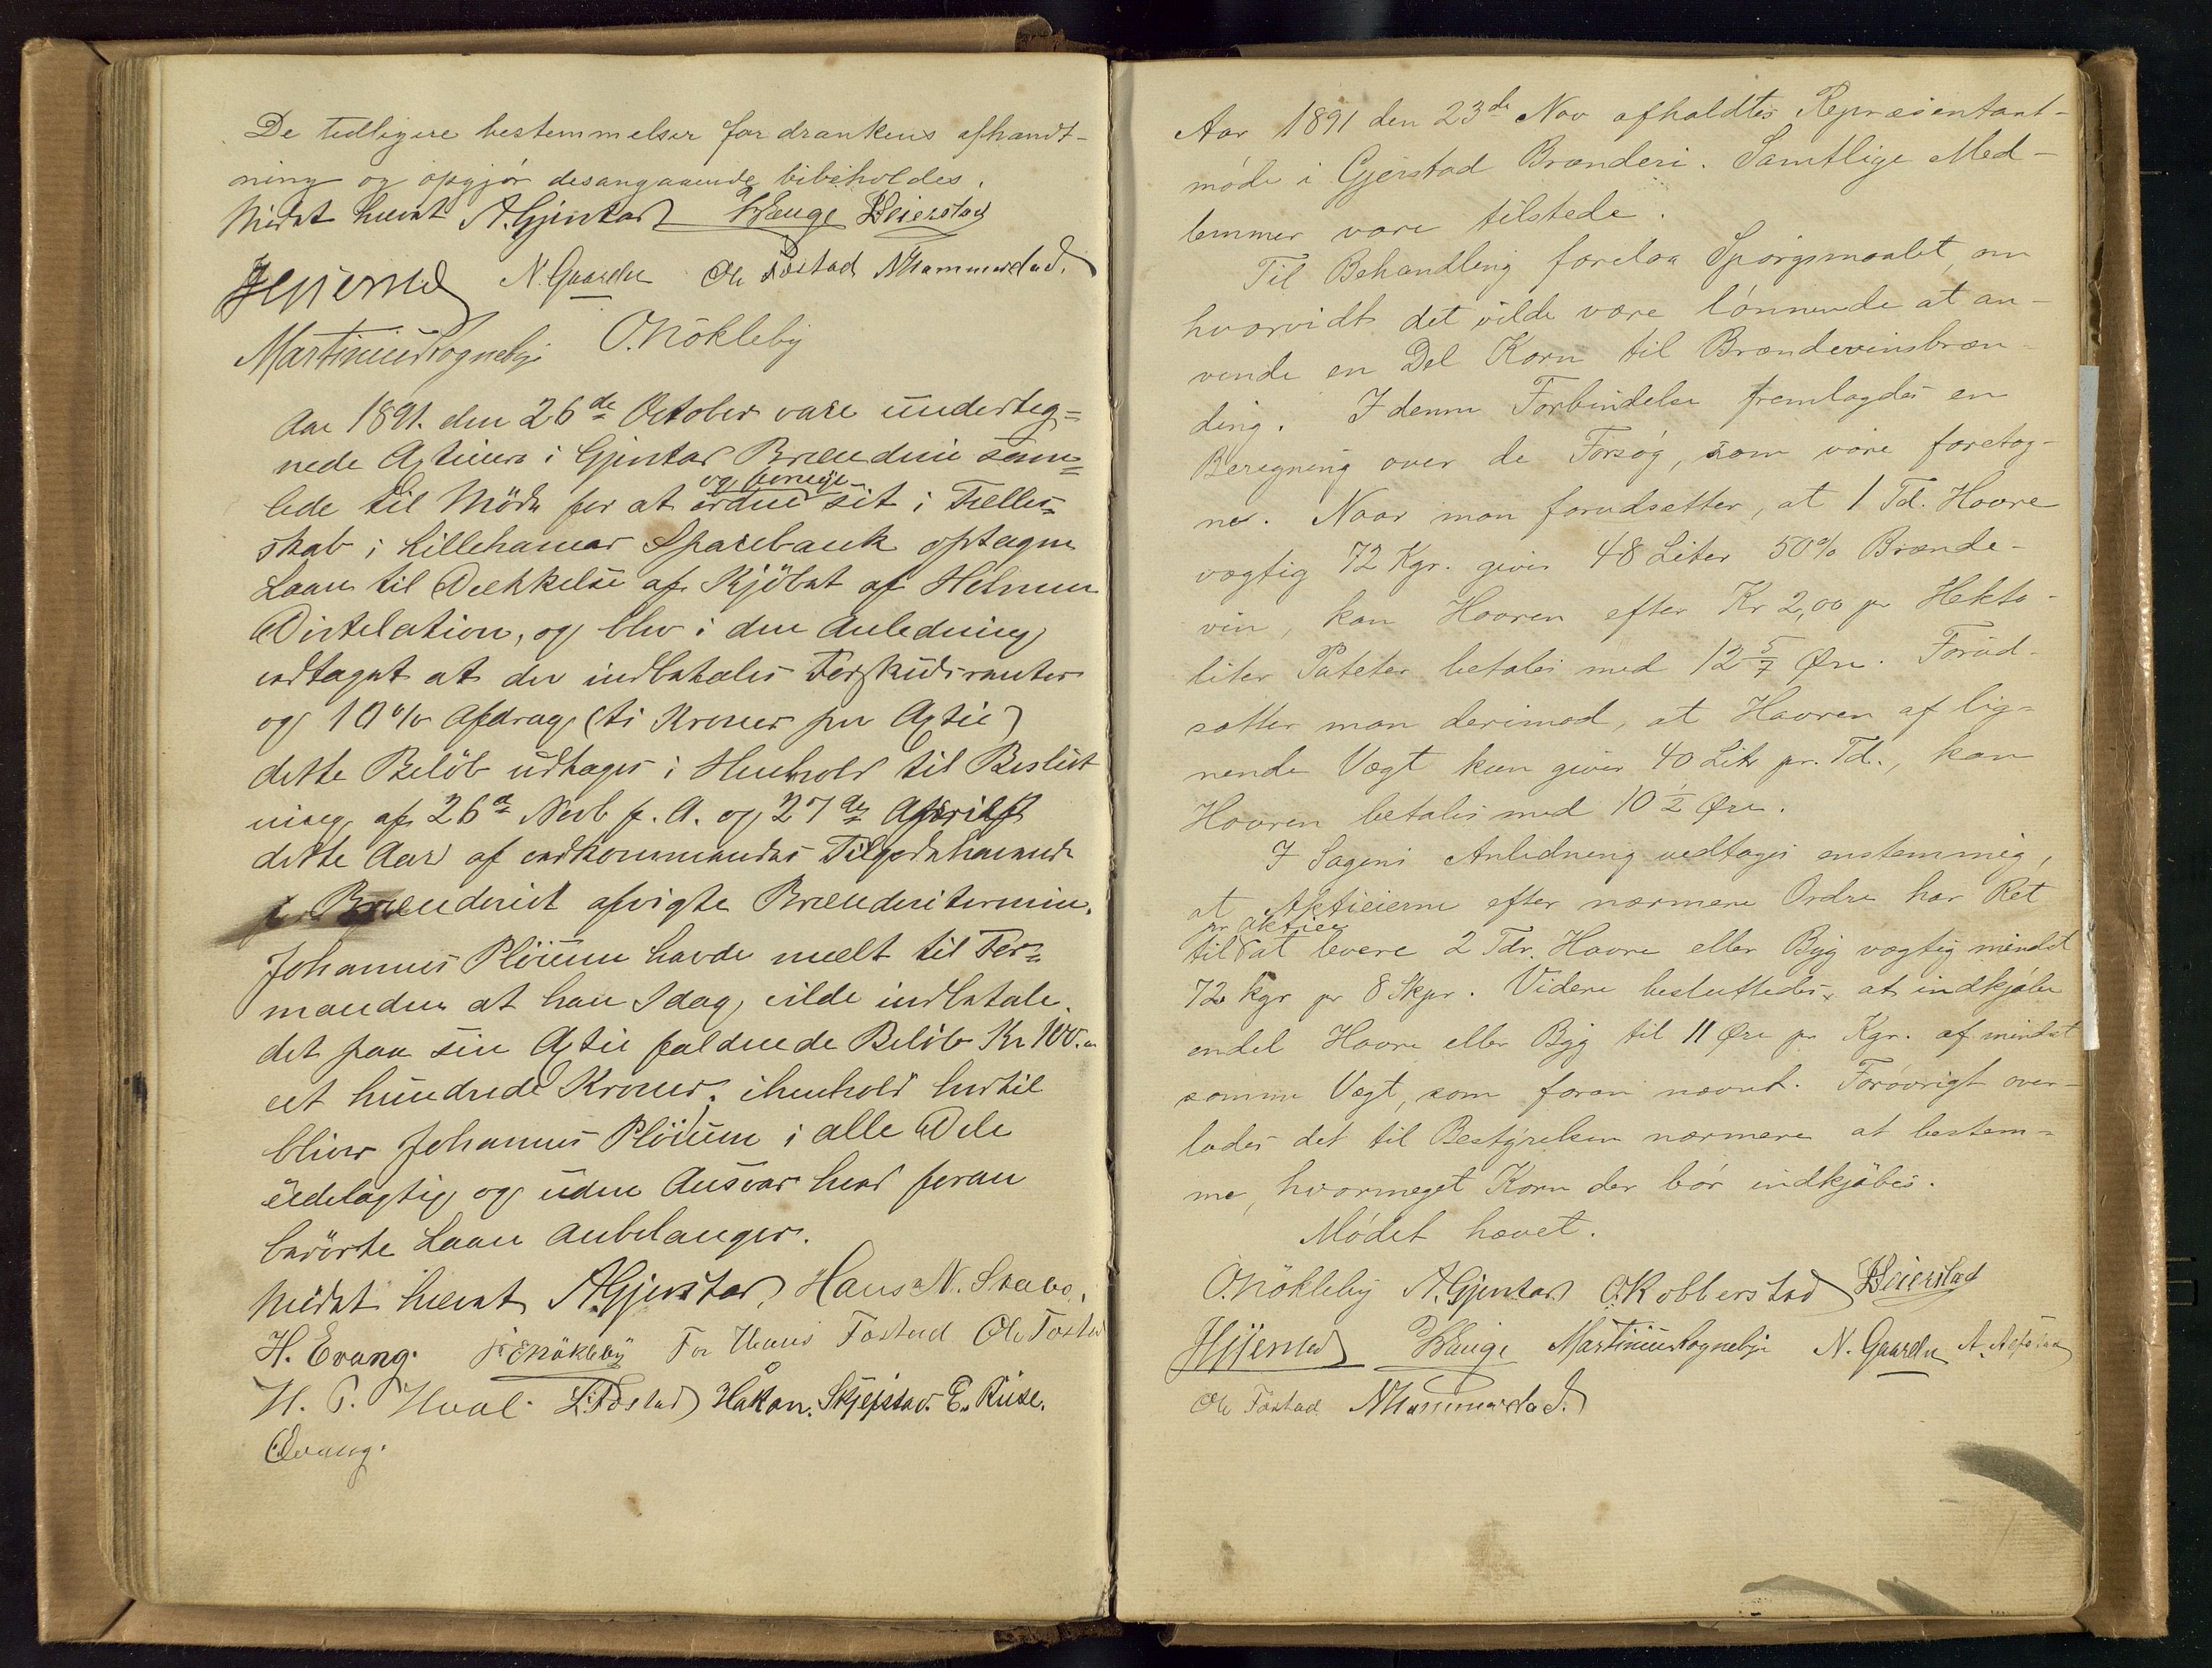 De tidligere bestemmelser for drankens afhændt-
ning og opgjør desangaaende bibeholdes.
Mødet hævet A. Gjerstad Hauge Beierstad
N. Gaarder Ole Fostad N Hammerstad.
Martinius Rognebye O. Nökleby
Aar 1891. den 26de October vare underteg=
nede Actieier i Gjerstad Brænderi sam=
lede til Möde for at ordne og fornye sit i Felles=
skab i Lillehamar Sparebank optagne
Laan til Deckkelse af Kjöbet af Helmen
Distelation, og blev i den Anledning
vedtaget at der indbetales Forskudsrenter
og 10% Afdrag (ti Kroner per Actie)
dette Belöb udtages i Henhold til Beslut
ning af 26de Novb f. A. og 27de April
dette Aar af vedkommendes Tilgodehavende
i Brænderiet afvigte Brænderitermin.
Johannes Plöuen havde mælt til For=
manden at han Idag vilde indbetale
det paa sin Actie faldende Belöb Kr 100.
eet hundrede Kroner, ihenhold hertil
bliver Johannes Plöuen i alle Dele
udelagtig og uden Ansvar hvad foran
berörte Laan anbelanger.
Mödet hævet A Gjerstad, Hans N. Skabo,
H. Evang. E Nökleby For Hans Fostad Ole Fostad
H. P. Hval. L. Fostad Håkon. Skjefstad. E. Ruse.
Evang.
Aar 1891 den 23de Nov afholdtes Repræsentant-
møde i Gjerstad Brænderi. Samtlige Med-
lemmer vare tilstede.
Til Behandling forelaa Spørgsmaalet, om
hvorvidt det vilde være lønnende at an-
vende en Del Korn til Brændevinsbræn-
ding. I denne Forbindelse fremlagdes en
Beregning over de Forsøg, som vare foretag-
ne. Naar man forudsætter, at 1 Td. Havre
vægtig 72 Kgr. giver 48 Liter 50% Brænde-
vin, kan Havren efter Kr 2,00 pr Hekto-
liter Poteter betales med 12 5/7 Øre. Forud-
sætter man derimod, at Havren af lig-
nende Vægt kun giver 40 Litr pr. Td., kan
Havren betales med 10 1/2 Øre.
I Sagens Anledning vedtages enstemmig,
at Aktieierne efter nærmere Ordre har Ret
til pr Aktier at levere 2 Tdr. Havre eller Byg vægtig mindst
72 kgr pr 8 Skpr. Videre besluttedes, at indkjøbe
endel Havre eller Byg til 11 Øre pr Kgr. af mindst
samme Vægt, som foran nævnt. Forøvrigt over-
lades det til Bestyrelsen nærmere at bestem-
me, hvormeget Korn der bør indkjøbes.
Mødet hævet.
O. Nökleby A. Gjerstad O. Kobberstad Beierstad
Hauge Martinius Rognebye N. Gaarder
Ole Fostad N Hammerstad.